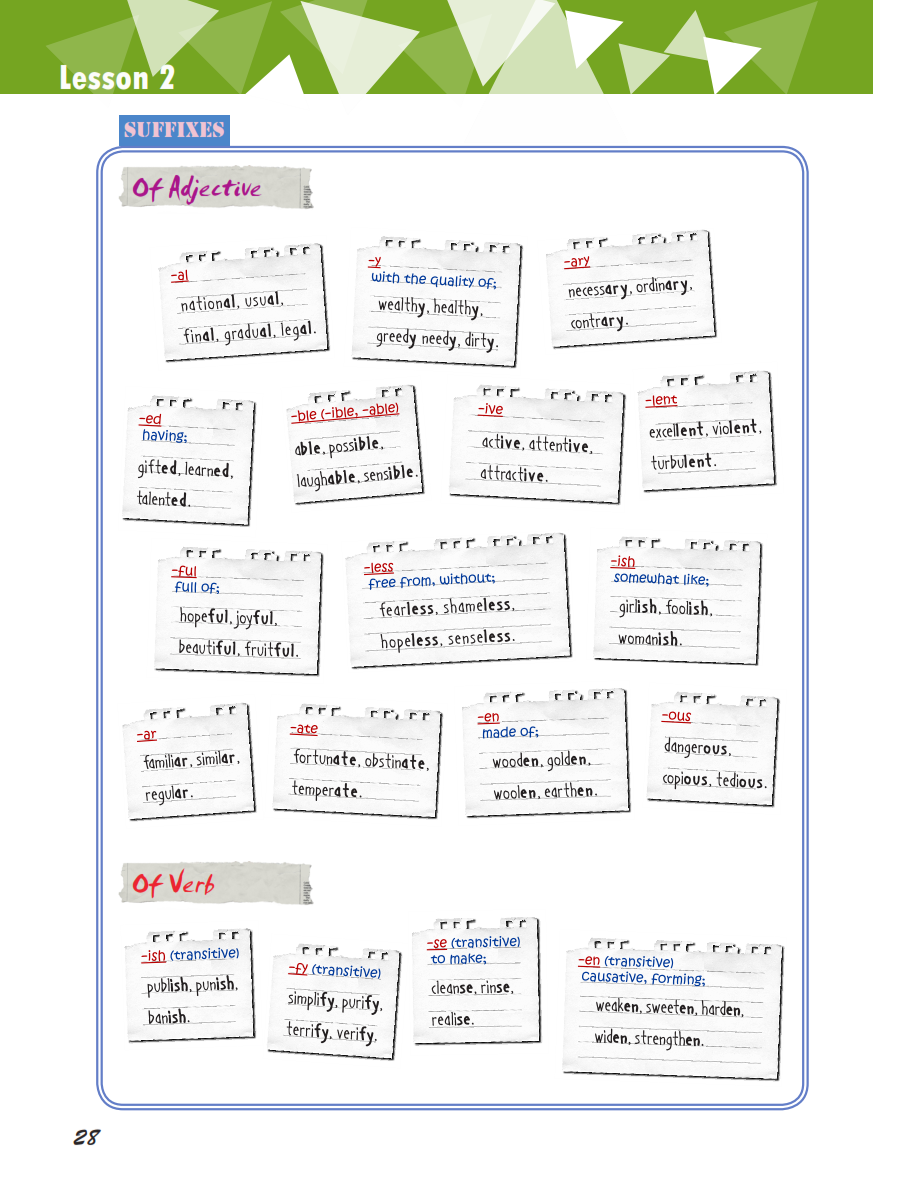 Lesson 2
SUFFIXES
Of Adjective
-al
national, usual,
final, gradual, legal.
-y
with the quality of;
wealthy, healthy,
greedy needy, dirty.
-ary
necessary, ordinary,
contrary.
-ed
having;
gifted, learned,
talented.
-ble (-ible, -able)
able, possible,
laughable, sensible.
-ive
active, attentive,
attractive.
-lent
excellent, violent,
turbulent.
-ful
full of;
hopeful, joyful,
beautiful, fruitful.
-less
free from, without;
fearless, shameless,
hopeless, senseless.
-ish
somewhat like;
girlish, foolish,
womanish.
-ar
familiar, similar,
regular.
-ate
fortunate, obstinate,
temperate.
-en
made of;
wooden, golden,
woolen, earthen.
-ous
dangerous,
copious, tedious.
Of Verb
-ish (transitive)
publish, punish,
banish.
-fy (transitive)
simplify, purify,
terrify, verify,
-se (transitive)
to make;
cleanse, rinse,
realise.
-en (transitive)
causative, forming;
weaken, sweeten, harden,
widen, strengthen.
28